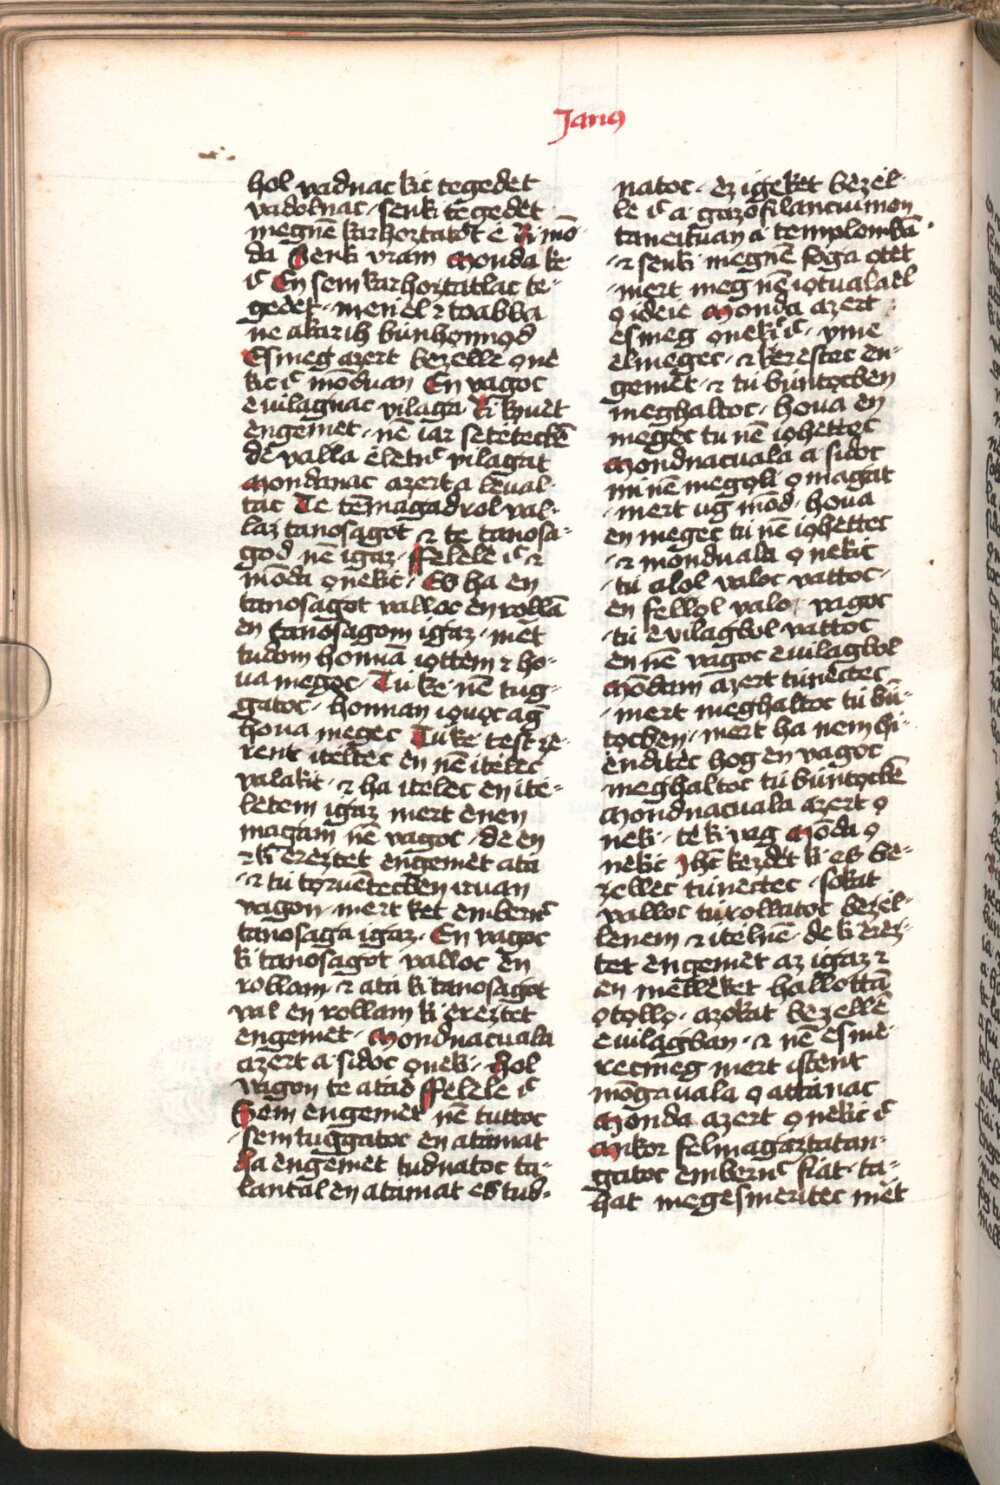 Janꝰ
hol vadnac kic tegedet
vadolnac · senki tegedet
megnē karhoztatot é Ki mō
da Senki vram Monda ke
ic̄ En sem karhoztatlac te-
gedet · menel ⁊ toabba
ne akarih būnhonnod
Esmeg azert bezelle onè
kic ic̄ mōduan En vagoc
e vilagnac vilaga · Ki kouèt
engemet · nē iar setetecbē
dè valla èlètnc̄ vilagat
Mondanac azert a leual-
tac Te tēmagadrol val-
laz tanosagot ⁊ te tanosa-
god nē igaz · Felele ic̄ ⁊
mōda onekic · Es ha en
tanosagot valloc en rollā
en tanosagom igaz · mèt
tudom honnā iottem ⁊ ho-
ua megoc · Tu ke nē tug-
gatoc · honnan iouoc ag
houa megec Tu ke test ze-
rent iteltec en nē itelec
valakit · ⁊ ha itelec en ite-
letem igaz mert enen
magam nē vagoc · de en
⁊ ki ereztet engemet ata
· ⁊ tū toruentecben iruan
vagon · mert ket embernc̄
tanosaga igaz · En vagoc
ki tanosagot valloc en
rollam · ⁊ ata ki tanosagot
val en rollam ki ereztet
engemet · Mondnacuala
azert a sidoc onek · Hol
vagon te atad Felele ic̄
Sem engemet nē tuttoc
· sem tuggatoc en atamat
Ha engemet tudnatoc ta-
lantal en atamat es tud-
natoc · ez igeket bezel-
le ic̄ a gazofilanciumon
taneituan a templombā ·
· ⁊ senki megnē foga otèt
· mert meg nē iotuala èl
o ideie Monda azert
esmeg onekic ic̄ · yme
elmegec · ⁊ kerestec en-
gemèt · ⁊ tū būntocben
meghaltoc · houa en
megec tu nē iohettec
Mondnacuala a sidoc
mi nē megoli o magat
· mert ug mōd · houa
en megec tū nē iohettec
· ⁊ monduala onekic
· tū alol valoc vattoc ·
en fellol valo vagoc
· tū e vilagbol vattoc
en nē vagoc e vilagbol
Mōdam azert tūnectec
· mert meghaltoc tū bū-
tocben · mert ha nem hi-
enditec hog en vagoc
meghaltoc tū būntocbē
Mondnacuala azert o
nek · te ki vag Mōda o
nekic Ihc̄ kezdèt ki es be-
zellec tūnectec · sokat
valloc tūrollatoc bezel-
lenem ⁊ itelnē · de ki èrez-
tet engemet az igaz ⁊
en mellèket hallottā
otollo · azokat bezellè
e vilagban · ⁊ nē esme-
recmeg mert istent
mōgauala o attanac
Monda azert onekic ic̄
Mikor felmagaztatan-
gatoc embernc̄ fiat · ta-
hat megesmeritec mèt